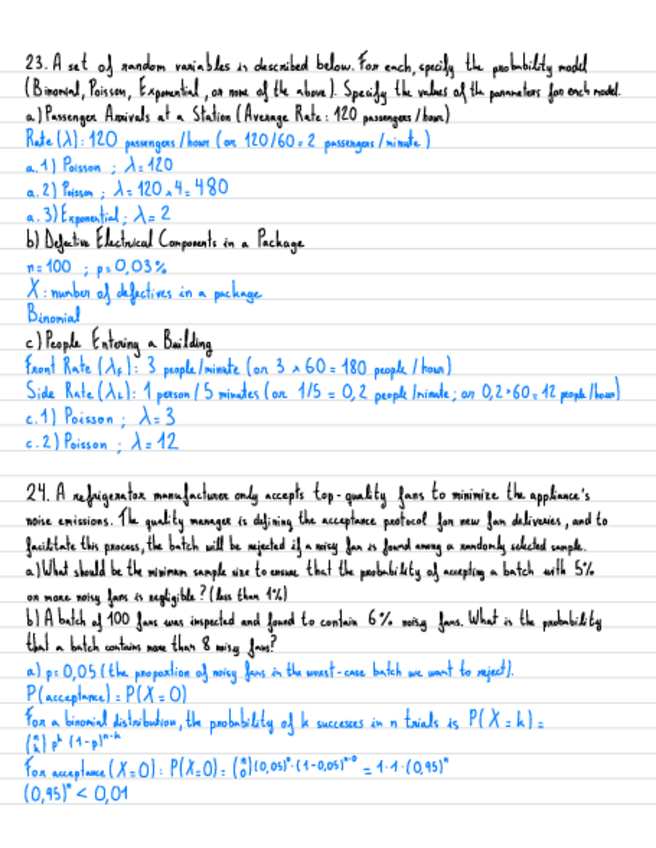 23. A set of random variables is described below. For each, specify the probability model
(Binomial, Poisson, Exponential, or none of the above). Specify the values of the parameters for each model.
a.) Passenger Arrivals at a Station (Average Rate: 120 passengers/hour)
Rate (λ): 120 passengers/hour (or 120/60 = 2 passengers/minute)
a.1) Poisson ; λ = 120
a.2) Poisson ; λ = 120 × 4 = 480
a.3) Exponential ; λ = 2
b) Defective Electrical Components in a Package
n = 100 ; p = 0,03%
X : number of defectives in a package
Binomial
c) People Entering a Building
Front Rate (λF): 3 people/minute (or 3 × 60 = 180 people/hour)
Side Rate (λL): 1 person/5 minutes (or 1/5 = 0,2 people/minute; or 0,2×60 = 12 people/hour)
c.1) Poisson ; λ = 3
c.2) Poisson ; λ = 12
24. A refrigerator manufacturer only accepts top-quality fans to minimize the appliance's
noise emissions. The quality manager is defining the acceptance protocol for new fan deliveries, and to
facilitate this process, the batch will be rejected if a noisy fan is found among a randomly selected sample.
a.) What should be the minimum sample size to ensure that the probability of accepting a batch with 5%
or more noisy fans is negligible? (less than 1%)
b) A batch of 100 fans was inspected and found to contain 6% noisy fans. What is the probability
that a batch contains more than 8 noisy fans?
a) p = 0,05 (the proportion of noisy fans in the worst-case batch we want to reject).
P(acceptance) = P(X = 0)
For a binomial distribution, the probability of k successes in n trials is P(X = k) =
(n k) p^k (1-p)^n-k
For acceptance (X = 0): P(X = 0) = (n 0)(0,05)^0 · (1-0,05)^n-0 = 1·1·(0,95)^n
(0,95)^n < 0,01